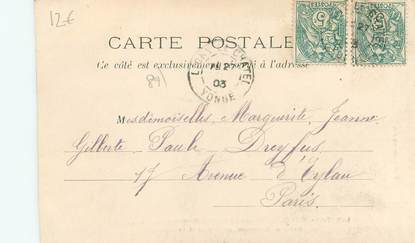 12€
CARTE POSTALE
Ce côté est exclusivement réservé à l'adresse
89
27
03
YONNE
Mesdemoiselles Marguerite, Jeanne
Gilberte Paule Dreyfus
17 Avenue d'Eylau
Paris.